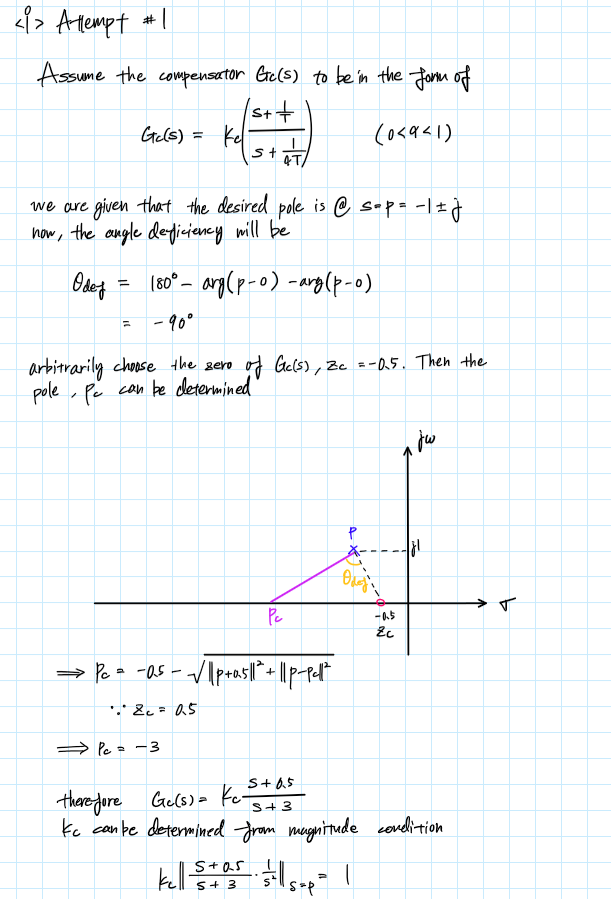 <i> Attempt #1
Assume the compensator Gc(s) to be in the form of
Gc(s) = Kc((s + 1/T)/(s + 1/aT)) (0<a<1)
we are given that the desired pole is @ s=p = -1 ± j
now, the angle deficiency will be
θdef = 180° - arg(p-0) - arg(p-0)
= -90°
arbitrarily choose the zero of Gc(s), zc = -0.5. Then the
pole, Pc can be determined
jω
P
j1
θdef
σ
Pc
-0.5
zc
⟹ Pc = -0.5 - √(‖p+0.5‖² + ‖p-Pc‖²)
∵ zc = 0.5
⟹ Pc = -3
therefore Gc(s) = Kc (s + 0.5)/(s + 3)
Kc can be determined from magnitude condition
Kc‖(s + 0.5)/(s + 3) · 1/s²‖s=p = 1